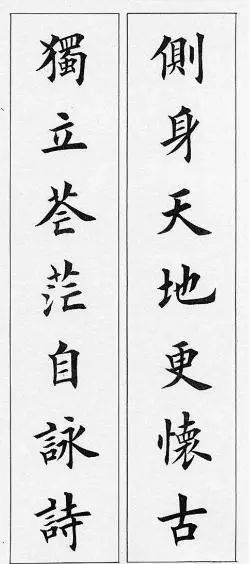 側身天地更懷古
獨立苍茫自詠詩